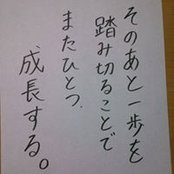 そのあと一歩を
踏み切ることで
またひとつ、
成長する。